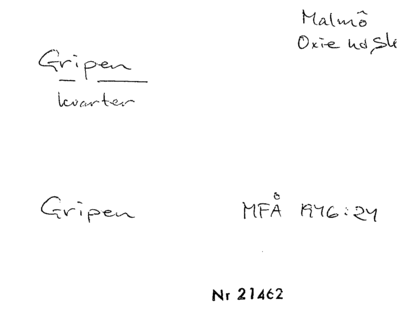 Malmö
Oxie hd, Sk
Gripen
kvarter
Gripen MFÅ 1976:24
Nr 21462